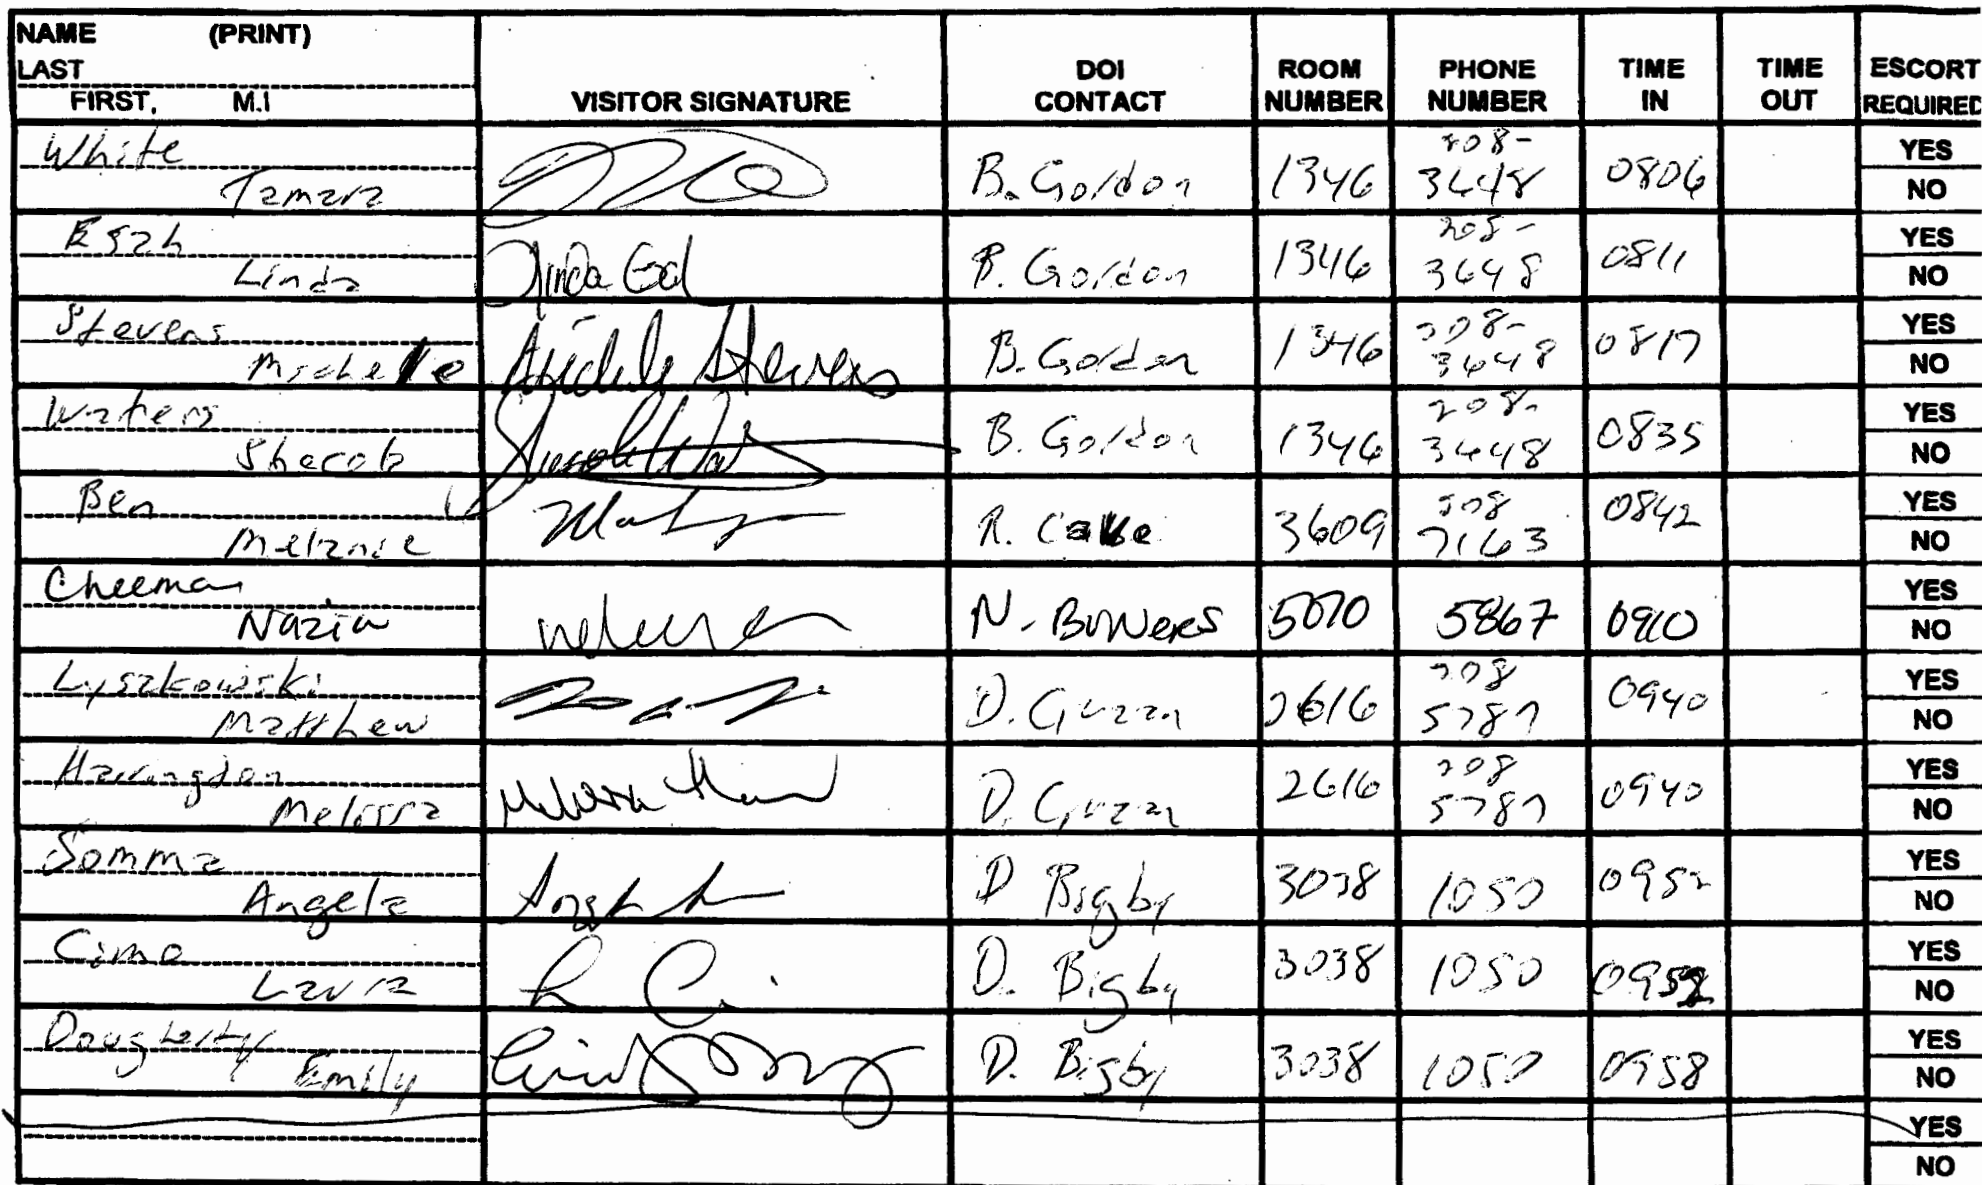 NAME (PRINT)
LAST
FIRST, M.I
VISITOR SIGNATURE
DOI
CONTACT
ROOM
NUMBER
PHONE
NUMBER
TIME
IN
TIME
OUT
ESCORT
REQUIRED
White
Tamara
B. Gordon
1346
208-
3648
0806
YES
NO
Esah
Linda
Linda
B. Gordon
1346
208-
3648
0811
YES
NO
Stevens
Michelle
Michele Stevens
B. Gordon
1346
208-
3648
0817
YES
NO
Waters
Sherob
B. Gordon
1346
208-
3648
0835
YES
NO
Ben
Melanie
R. Cave
3609
208
7163
0842
YES
NO
Cheeman
Nazia
N. Bowers
5070
5867
0910
YES
NO
Lyszkowski
Matthew
D. Guzan
2616
208
5787
0940
YES
NO
Harringdon
Melissa
Melissa
D. Guzan
2616
208
5787
0940
YES
NO
Somma
Angela
D Bigby
3038
1050
0952
YES
NO
Cimo
Laura
L C
D. Bigby
3038
1050
0952
YES
NO
Dougherty
Emily
D. Bigby
3038
1050
0958
YES
NO
YES
NO